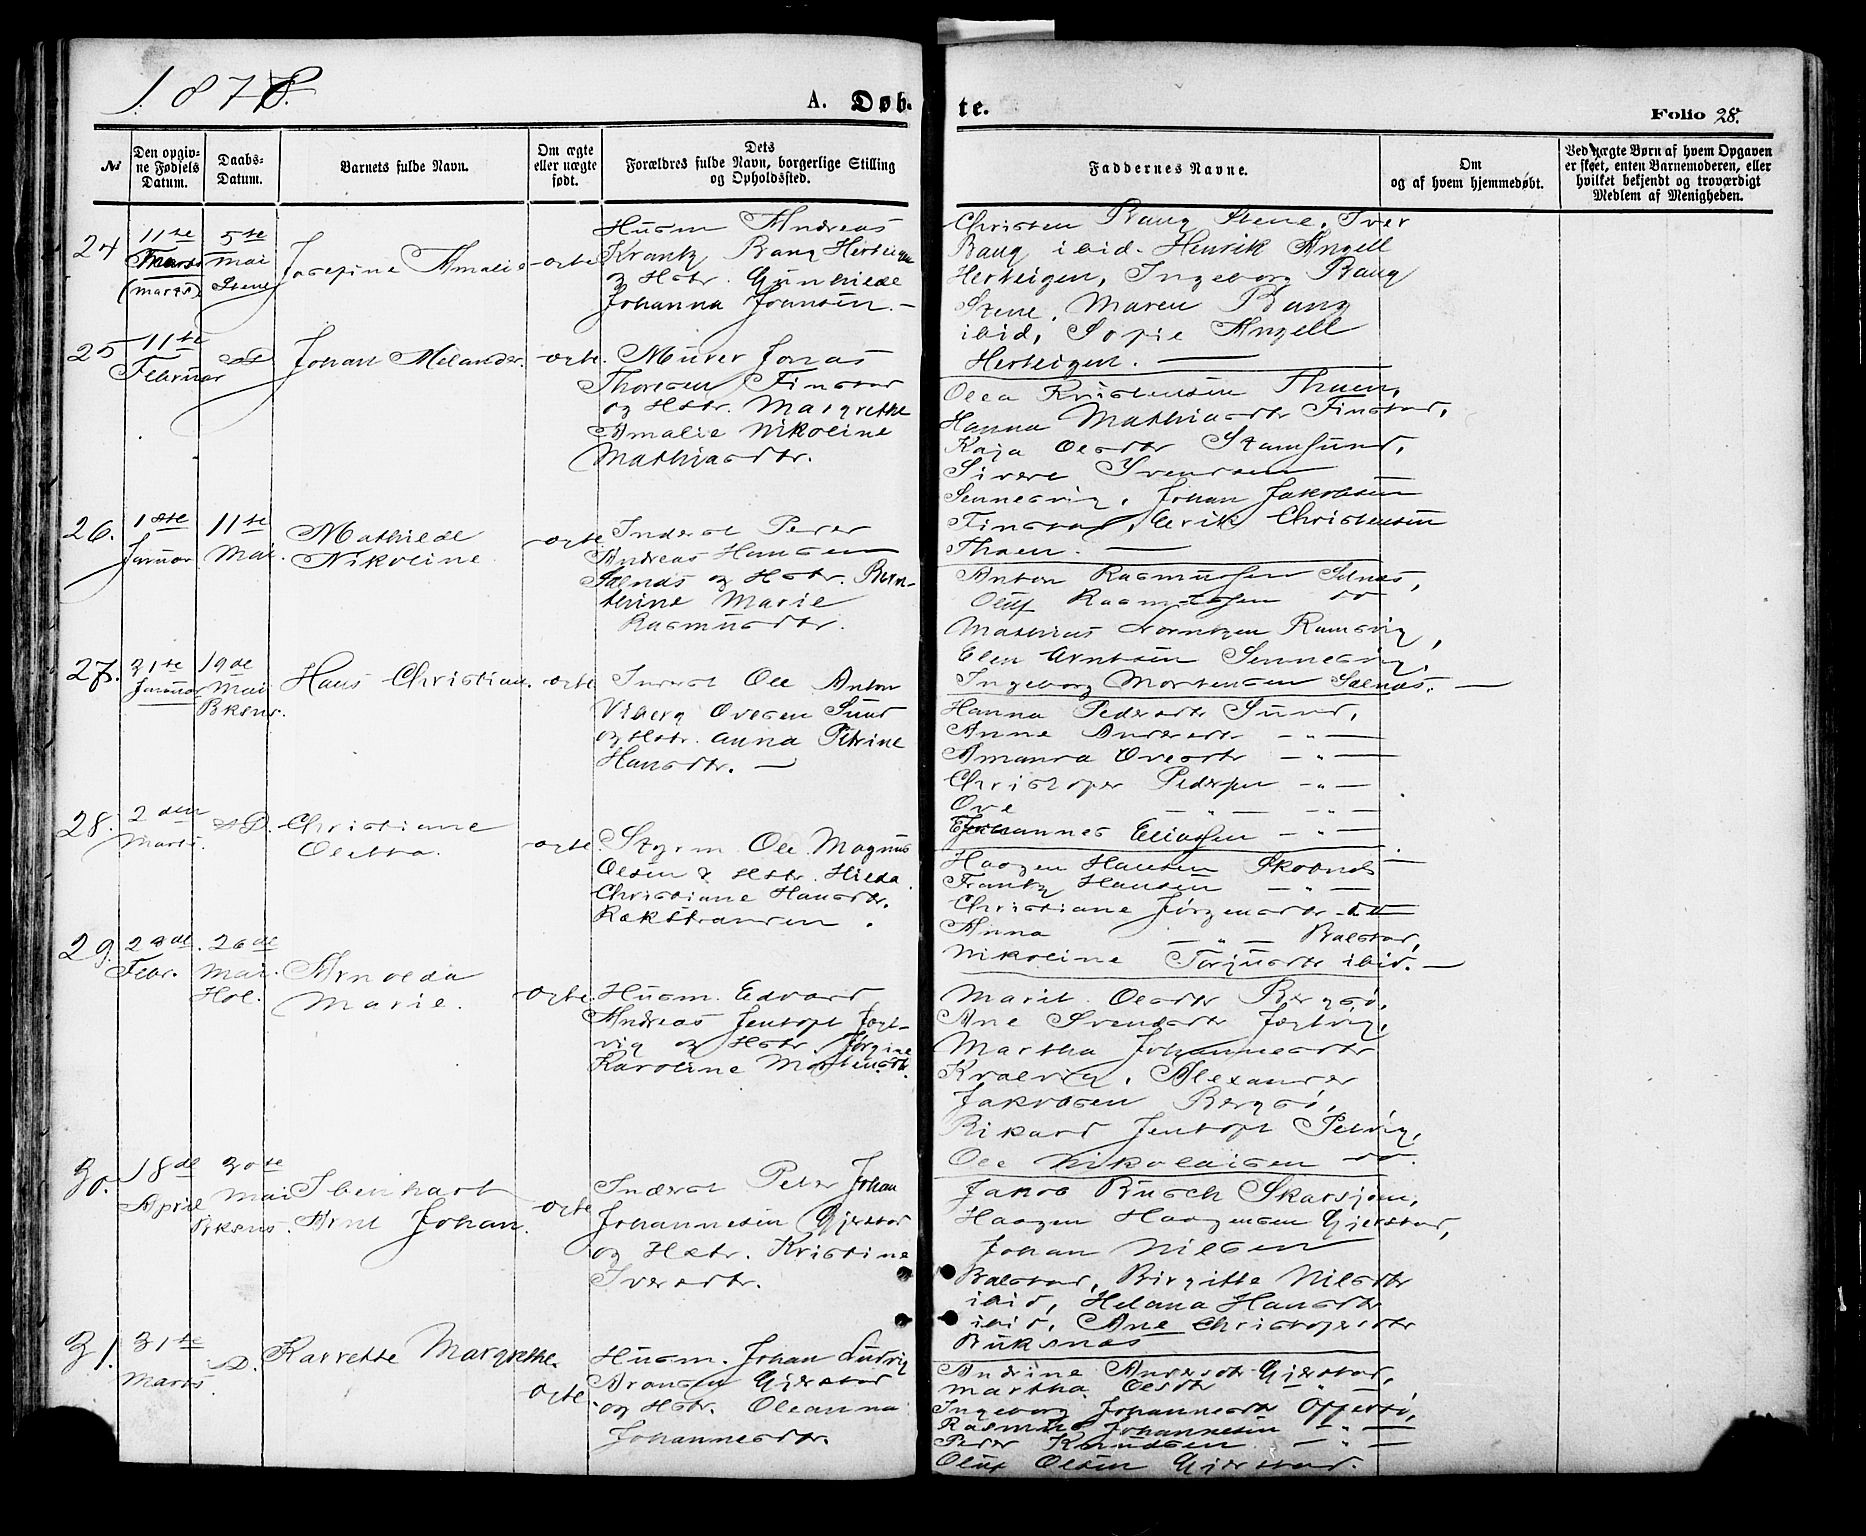 1878.
A. Døb-
te.
Folio 28.
№
Den opgiv-
ne Fødsels
Datum.
Daabs-
Datum.
Barnets fulde Navn.
Om ægte
eller uægte
født.
Dets
Forældres fulde Navn, borgerlige Stilling
og Opholdssted.
Faddernes Navne.
Om
og af hvem hjemmedøbt.
Ved uægte Børn af hvem Opgaven
er skeet, enten Barnemoderen, eller
hvilket bekjendt og troværdigt
Medlem af Menigheden.
24
11te
Marts
(marts)
5te
Mai
Stene
Josefine Amalie
ægte
Husm Andreas
Krantz Bang Herteigen
og Hstr. Gunhilde
Johanna Jonsen. —
Christen Bang Stene, Iver
Bang ibid. Henrik Angell
Herteigen, Ingeborg Bang
Stene, Maren Bang
ibid, Sofie Angell
Herteigen. —
25
11te
Februar
Johan Melander.
ægte.
Murer Jonas
Thoresen Finstad
og Hstr. Margrethe
Amalie Nikoline
Mathiasdtr.
Olea Kristensen Thuen,
Hanna Mathiasdtr Finstad,
Kaja Olsdtr Stamsund,
Sivert Svendsen
Sennesvig, Johan Jakobsen
Finstad, Erik Christensen
Thuen. —
26.
18de
Januar
11te
Mai.
Mathilde
Nikoline
ægte
Inderst Peder
Andreas Hansen
Sælnæs og Hstr. Bern-
thine Marie
Rasmusdtr.
Anton Rasmussen Selnæs,
Oluf Rasmussen do
Mathias Lorntzen Ramsvig,
Elen Arntsen Sennesvig,
Ingeborg Mortensen Sælnæs. —
27.
31te
Januar
19de
Mai
Bksns.
Hans Christian.
ægte
Inderst Ole Anton
Viberg Ovesen Sund
og Hstr. Anna Petrine
Hansdtr. —
Hanna Pedersdtr Sund,
Anne Andersdtr — " —
Amanda Ovesdtr — " —
Christofer Pedersen — " —
Ove — " — — " —
Johannes Eliassen — " —
28.
2den
Marts.
sD.
Christiane
Oletta.
ægte.
Styrm. Ole Magnus
Olsen & Hstr. Hilda
Christiane Hansdtr.
Rækstranden.
Haagen Hansen Skotnes
Frantz Hansen — " —
Christiane Jørgensdtr do
Anna — " — Balstad,
Nikoline Torjusdtr ibid. —
29.
Febr.
26de
Mai.
Hol.
Arnolda
Marie.
ægte.
Husm. Edvard
Andreas Jentoft Jægt-
vig og Hstr. Jørgine
Karoline Mortensdtr.
Marit Olsdtr Bergsø,
Ane Svendsdtr Jægtvig,
Martha Johannesdtr
Kvalvig, Alexander
Jakobsen Bergsø,
Rikard Jentoft Petvig,
Ole Nikolaisen do.
30.
18de
April
30te
Mai
Bksns.
Ibenhart
Arnt Johan.
ægte
Inderst Peter Johan
Johannesen Gjerstad
og Hstr. Kristine
Iversdtr.
Jakob Busch Skarsjøen,
Haagen Haagensen Gjerstad,
Johan Nilsen
Balstad, Birgitte Nilsdtr
ibid, Helana Hansdtr
ibid, Ane Christofersdtr
Buksnæs
31.
31te
Marts.
sD.
Karrette Margrethe.
ægte.
Husm. Johan Ludvig
Aronsen Gjerstad
og Hstr. Oleanna
Johannesdtr.
Andrine Andersdtr Gjerstad,
Martha Olsdtr — " —
Ingeborg Johannesdtr Offersø,
Rasmus Johannesen — " —
Peder Knudsen — " —
Oluf Olsen Gjerstad.